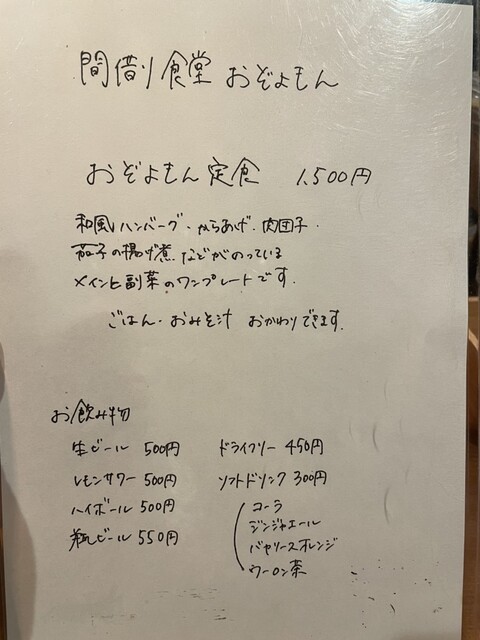 間借り食堂 おぞよもん
おぞよもん定食 1,500円
和風ハンバーグ・からあげ・肉団子・
茄子の揚げ煮 などがのっている
メインと副菜のワンプレートです.
ごはん・おみそ汁 おかわりできます.
お飲み物
生ビール 500円
レモンサワー 500円
ハイボール 500円
瓶ビール 550円
ドライフリー 450円
ソフトドリンク 300円
コーラ
ジンジャエール
バヤリースオレンジ
ウーロン茶